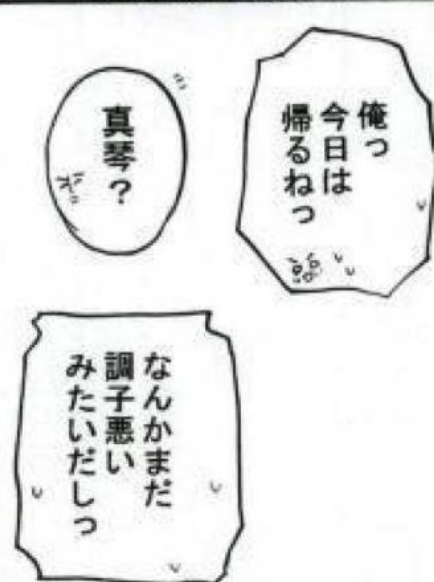 俺っ
今日は
帰るねっ
真琴？
なんかまだ
調子悪い
みたいだしっ